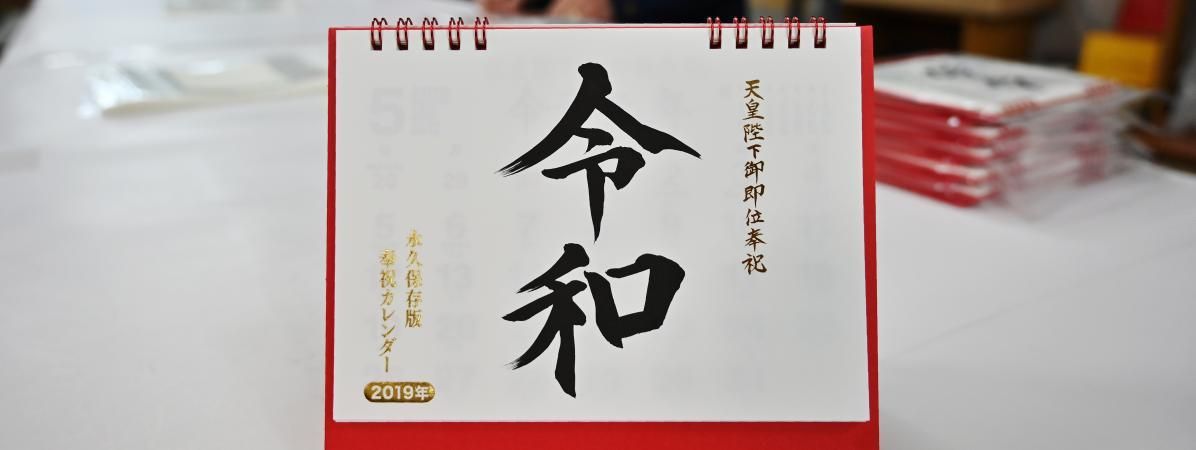 天皇陛下御即位奉祝
令和
永久保存版
奉祝カレンダー
2019年